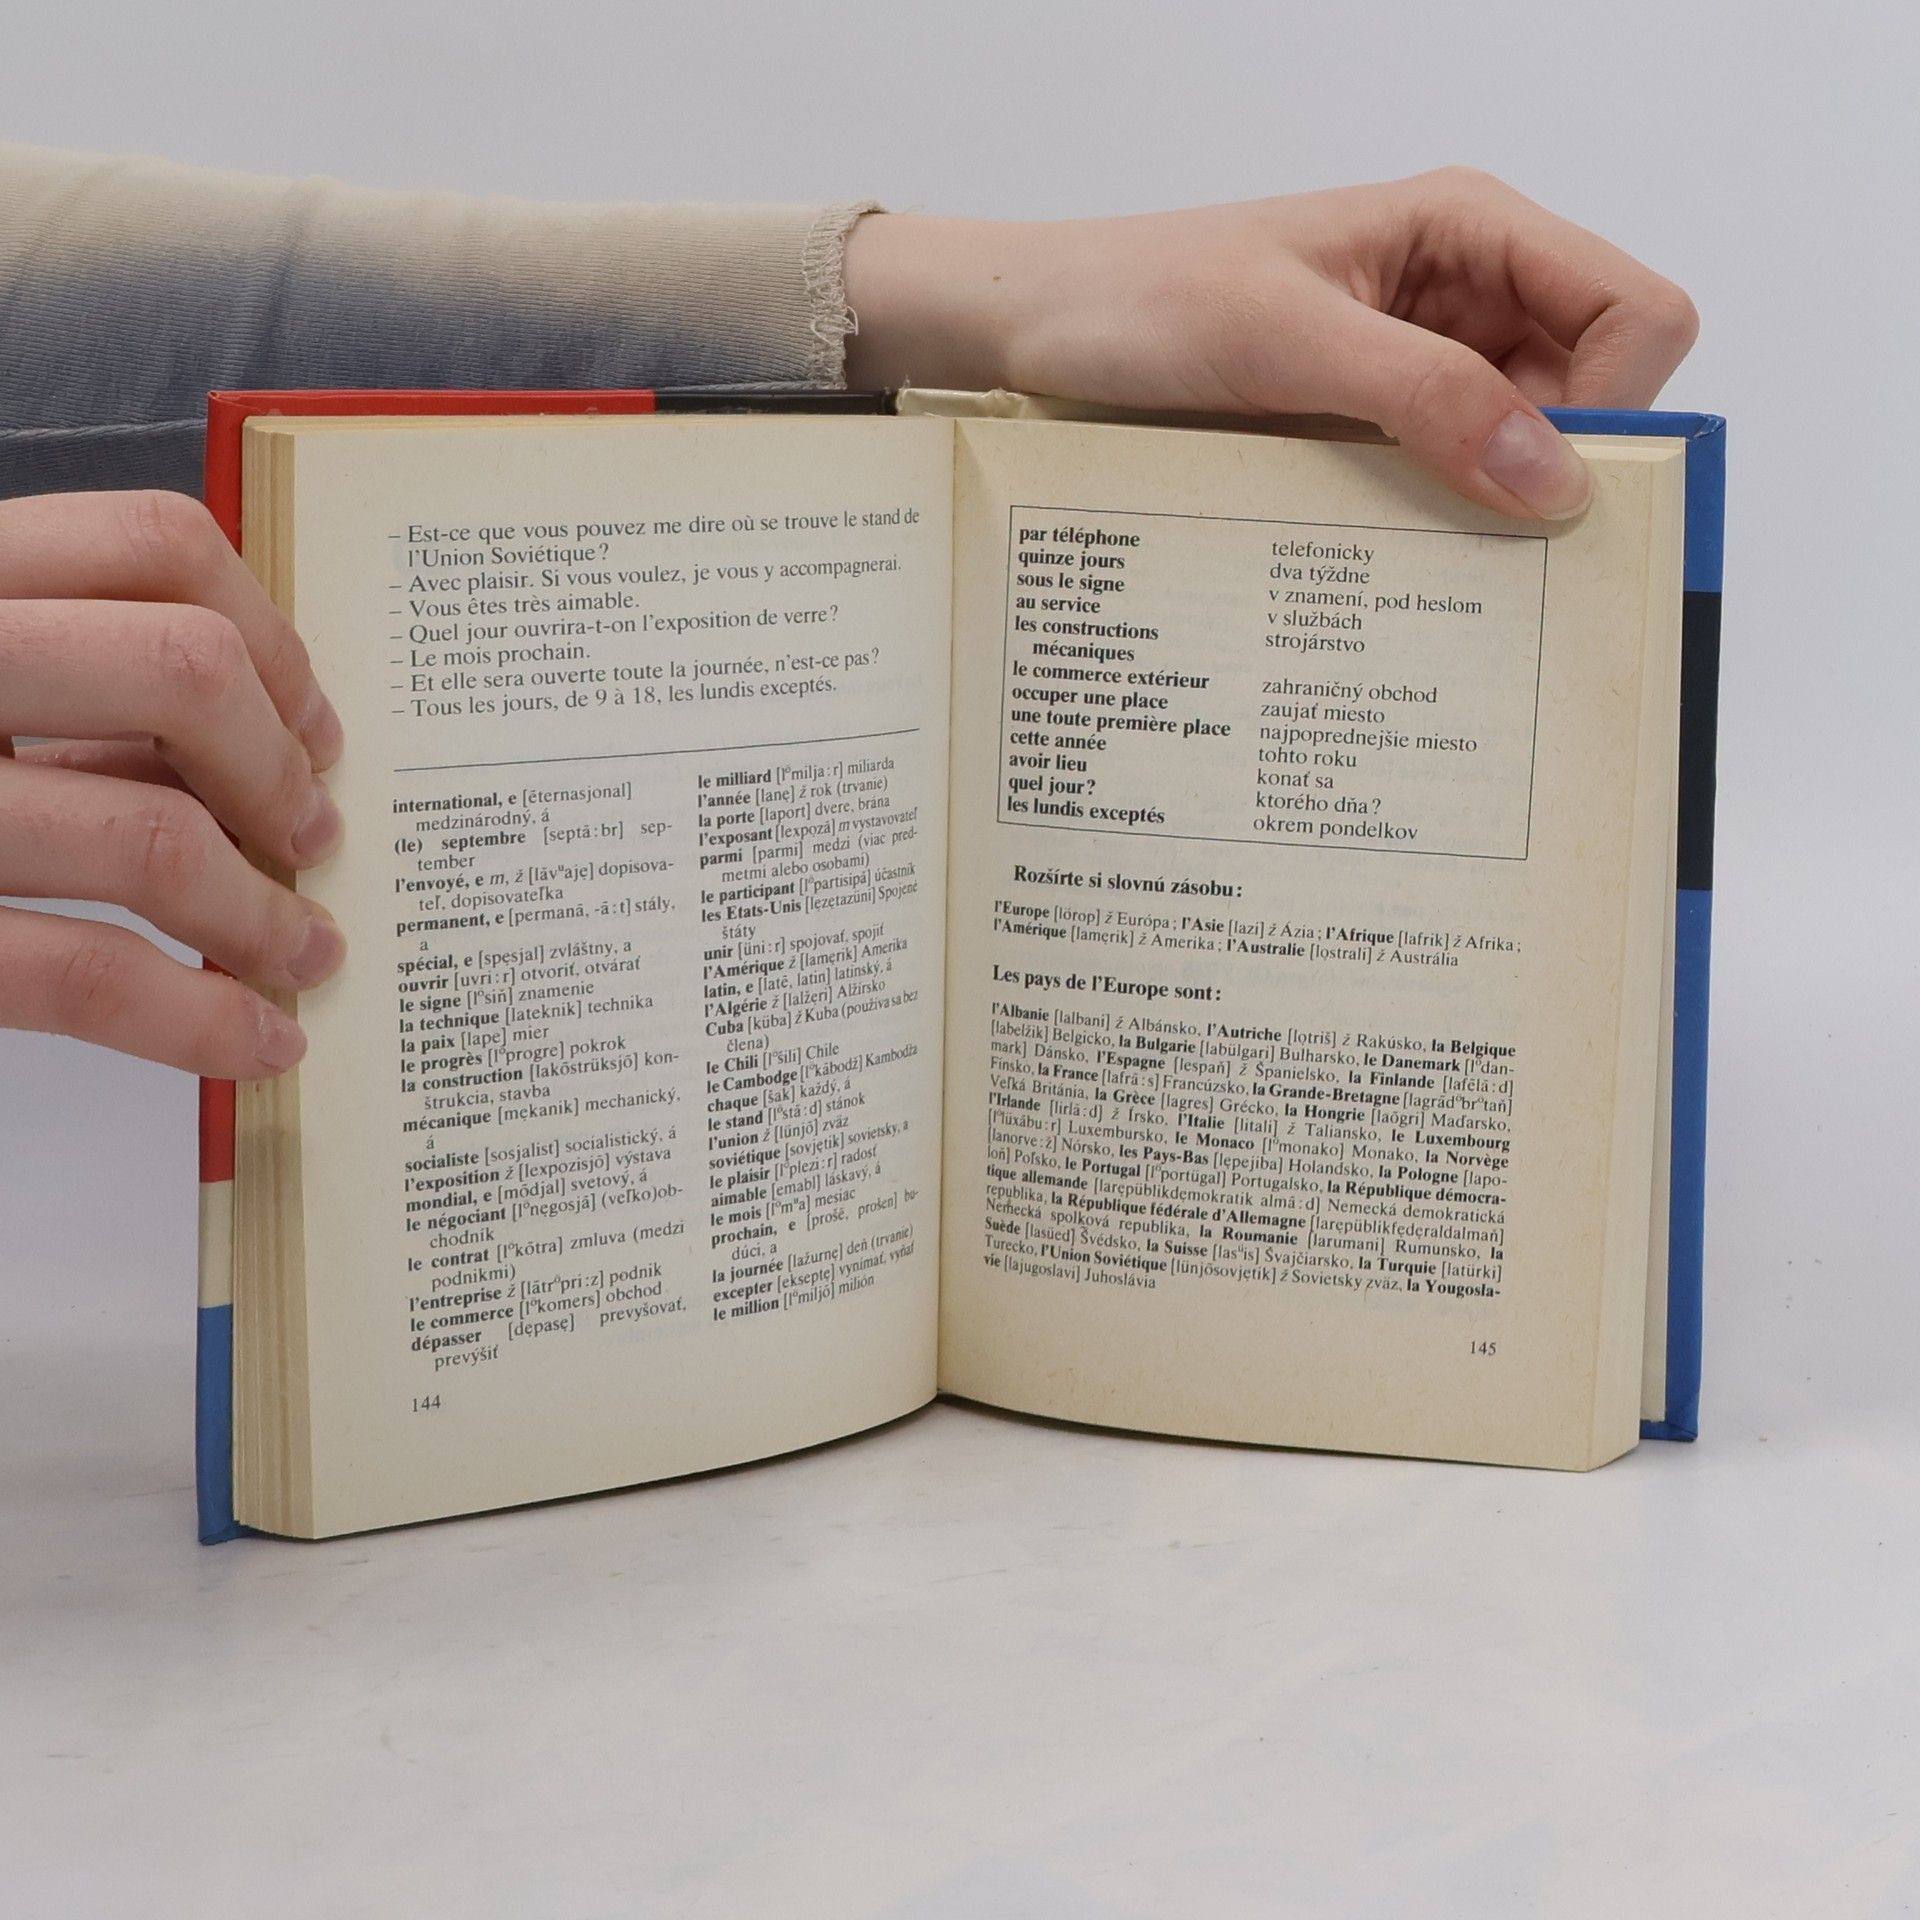 – Est-ce que vous pouvez me dire où se trouve le stand de
l’Union Soviétique?
– Avec plaisir. Si vous voulez, je vous y accompagnerai.
– Vous êtes très aimable.
– Quel jour ouvrira-t-on l’exposition de verre?
– Le mois prochain.
– Et elle sera ouverte toute la journée, n’est-ce pas?
– Tous les jours, de 9 à 18, les lundis exceptés.
international, e [ēternasjonal]
medzinárodný, á
(le) septembre [septã:br] sep-
tember
l’envoyé, e m, ž [lãvᵘaję] dopisova-
teľ, dopisovateľka
permanent, e [permanã, -ã:t] stály,
a
spécial, e [spęsjal] zvláštny, a
ouvrir [uvri:r] otvoriť, otvárať
le signe [lºsiň] znamenie
la technique [lateknik] technika
la paix [lape] mier
le progrès [lºprogre] pokrok
la construction [lakõstrüksjõ] kon-
štrukcia, stavba
mécanique [mękanik] mechanický,
á
socialiste [sosjalist] socialistický, á
l’exposition ž [lexpozisjõ] výstava
mondial, e [mõdjal] svetový, á
le négociant [lºnęgosjã] (veľko)ob-
chodník
le contrat [lºkõtra] zmluva (medzi
podnikmi)
l’entreprise ž [lãtrºpri:z] podnik
le commerce [lºkomers] obchod
dépasser [dępasę] prevyšovať,
prevýšiť
144
le milliard [lºmilja:r] miliarda
l’année [lanę] ž rok (trvanie)
la porte [laport] dvere, brána
l’exposant [lexpozã] m vystavovateľ
parmi [parmi] medzi (viac pred-
metmi alebo osobami)
le participant [lºpartisipã] účastník
les Etats-Unis [lęzętazüni] Spojené
štáty
unir [üni:r] spojovať, spojiť
l’Amérique ž [lamęrik] Amerika
latin, e [latẽ, latin] latinský, á
l’Algérie ž [lalžęri] Alžírsko
Cuba [küba] ž Kuba (používa sa bez
člena)
le Chili [lºšili] Chile
le Cambodge [lºkãbodž] Kambodža
chaque [šak] každý, á
le stand [lºstã:d] stánok
l’union ž [lünjõ] zväz
soviétique [sovjętik] sovietsky, a
le plaisir [lºplezi:r] radosť
aimable [emabl] láskavý, á
le mois [lºmᵘa] mesiac
prochain, e [prošẽ, prošen] bu-
dúci, a
la journée [lažurnę] deň (trvanie)
excepter [ekseptę] vynímať, vyňať
le million [lºmiljõ] milión
par téléphone telefonicky
quinze jours dva týždne
sous le signe v znamení, pod heslom
au service v službách
les constructions strojárstvo
mécaniques
le commerce extérieur zahraničný obchod
occuper une place zaujať miesto
une toute première place najpoprednejšie miesto
cette année tohto roku
avoir lieu konať sa
quel jour? ktorého dňa?
les lundis exceptés okrem pondelkov
Rozšírte si slovnú zásobu:
l’Europe [lörop] ž Európa; l’Asie [lazi] ž Ázia; l’Afrique [lafrik] ž Afrika;
l’Amérique [lamęrik] ž Amerika; l’Australie [lǫstrali] ž Austrália
Les pays de l’Europe sont:
l’Albanie [lalbani] ž Albánsko, l’Autriche [lǫtriš] ž Rakúsko, la Belgique
[labelžik] Belgicko, la Bulgarie [labülgari] Bulharsko, le Danemark [lºdan-
mark] Dánsko, l’Espagne [lespaň] ž Španielsko, la Finlande [lafẽlã:d]
Fínsko, la France [lafrã:s] Francúzsko, la Grande-Bretagne [lagrãdºbrºtaň]
Veľká Británia, la Grèce [lagres] Grécko, la Hongrie [laõgri] Maďarsko,
l’Irlande [lirlã:d] ž Írsko, l’Italie [litali] ž Taliansko, le Luxembourg
[lºlüxãbu:r] Luxembursko, le Monaco [lºmonako] Monako, la Norvège
[lanorve:ž] Nórsko, les Pays-Bas [lępejiba] Holandsko, la Pologne [lapo-
loň] Poľsko, le Portugal [lºportügal] Portugalsko, la République démocra-
tique allemande [larępüblikdęmokratik almã:d] Nemecká demokratická
republika, la République fédérale d’Allemagne [larępüblikfęderaldalmaň]
Nemecká spolková republika, la Roumanie [larumani] Rumunsko, la
Suède [lasüed] Švédsko, la Suisse [lasᵘis] Švajčiarsko, la Turquie [latürki]
Turecko, l’Union Soviétique [lünjõsovjętik] ž Sovietsky zväz, la Yougosla-
vie [lajugoslavi] Juhoslávia
145